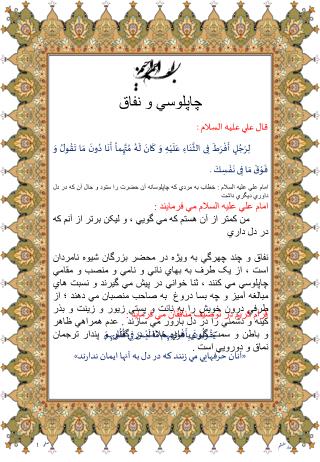 چاپلوسي و نفاق
قال علي عليه السلام :
لِرَجُلٍ أَفْرَطَ فِي الثَّنَاءِ عَلَيْهِ وَ كَانَ لَهُ مُتَّهِماً أَنَا دُونَ مَا تَقُولُ وَ
فَوْقَ مَا فِي نَفْسِكَ .
امام علي عليه السلام : خطاب به مردي كه چاپلوسانه آن حضرت را ستود و حال آن كه در دل
داوري ديگري داشت
امام علي عليه السلام مي فرمايند :
من كمتر از آن هستم كه مي گويي ، و ليكن برتر از آنم كه
در دل داري
نفاق و چند چهرگي به ويژه در محضر بزرگان شيوه نامردان
است ، از يک طرف به بهاي ناني و نامي و منصب و مقامي
چاپلوسي مي كنند ، ثنا خواني در پيش مي گيرند و نسبت هاي
مبالغه آميز و چه بسا دروغ به صاحب منصبان مي دهند ؛ از
طرفي درون خويش را به
كينه و دشمني را در دل بارور مي سازند . عدم همراهي ظاهر
و باطن و
نفاق و دورويي است .
«آنان حرفهايي مي زنند كه در دل به آنها ايمان ندارند»